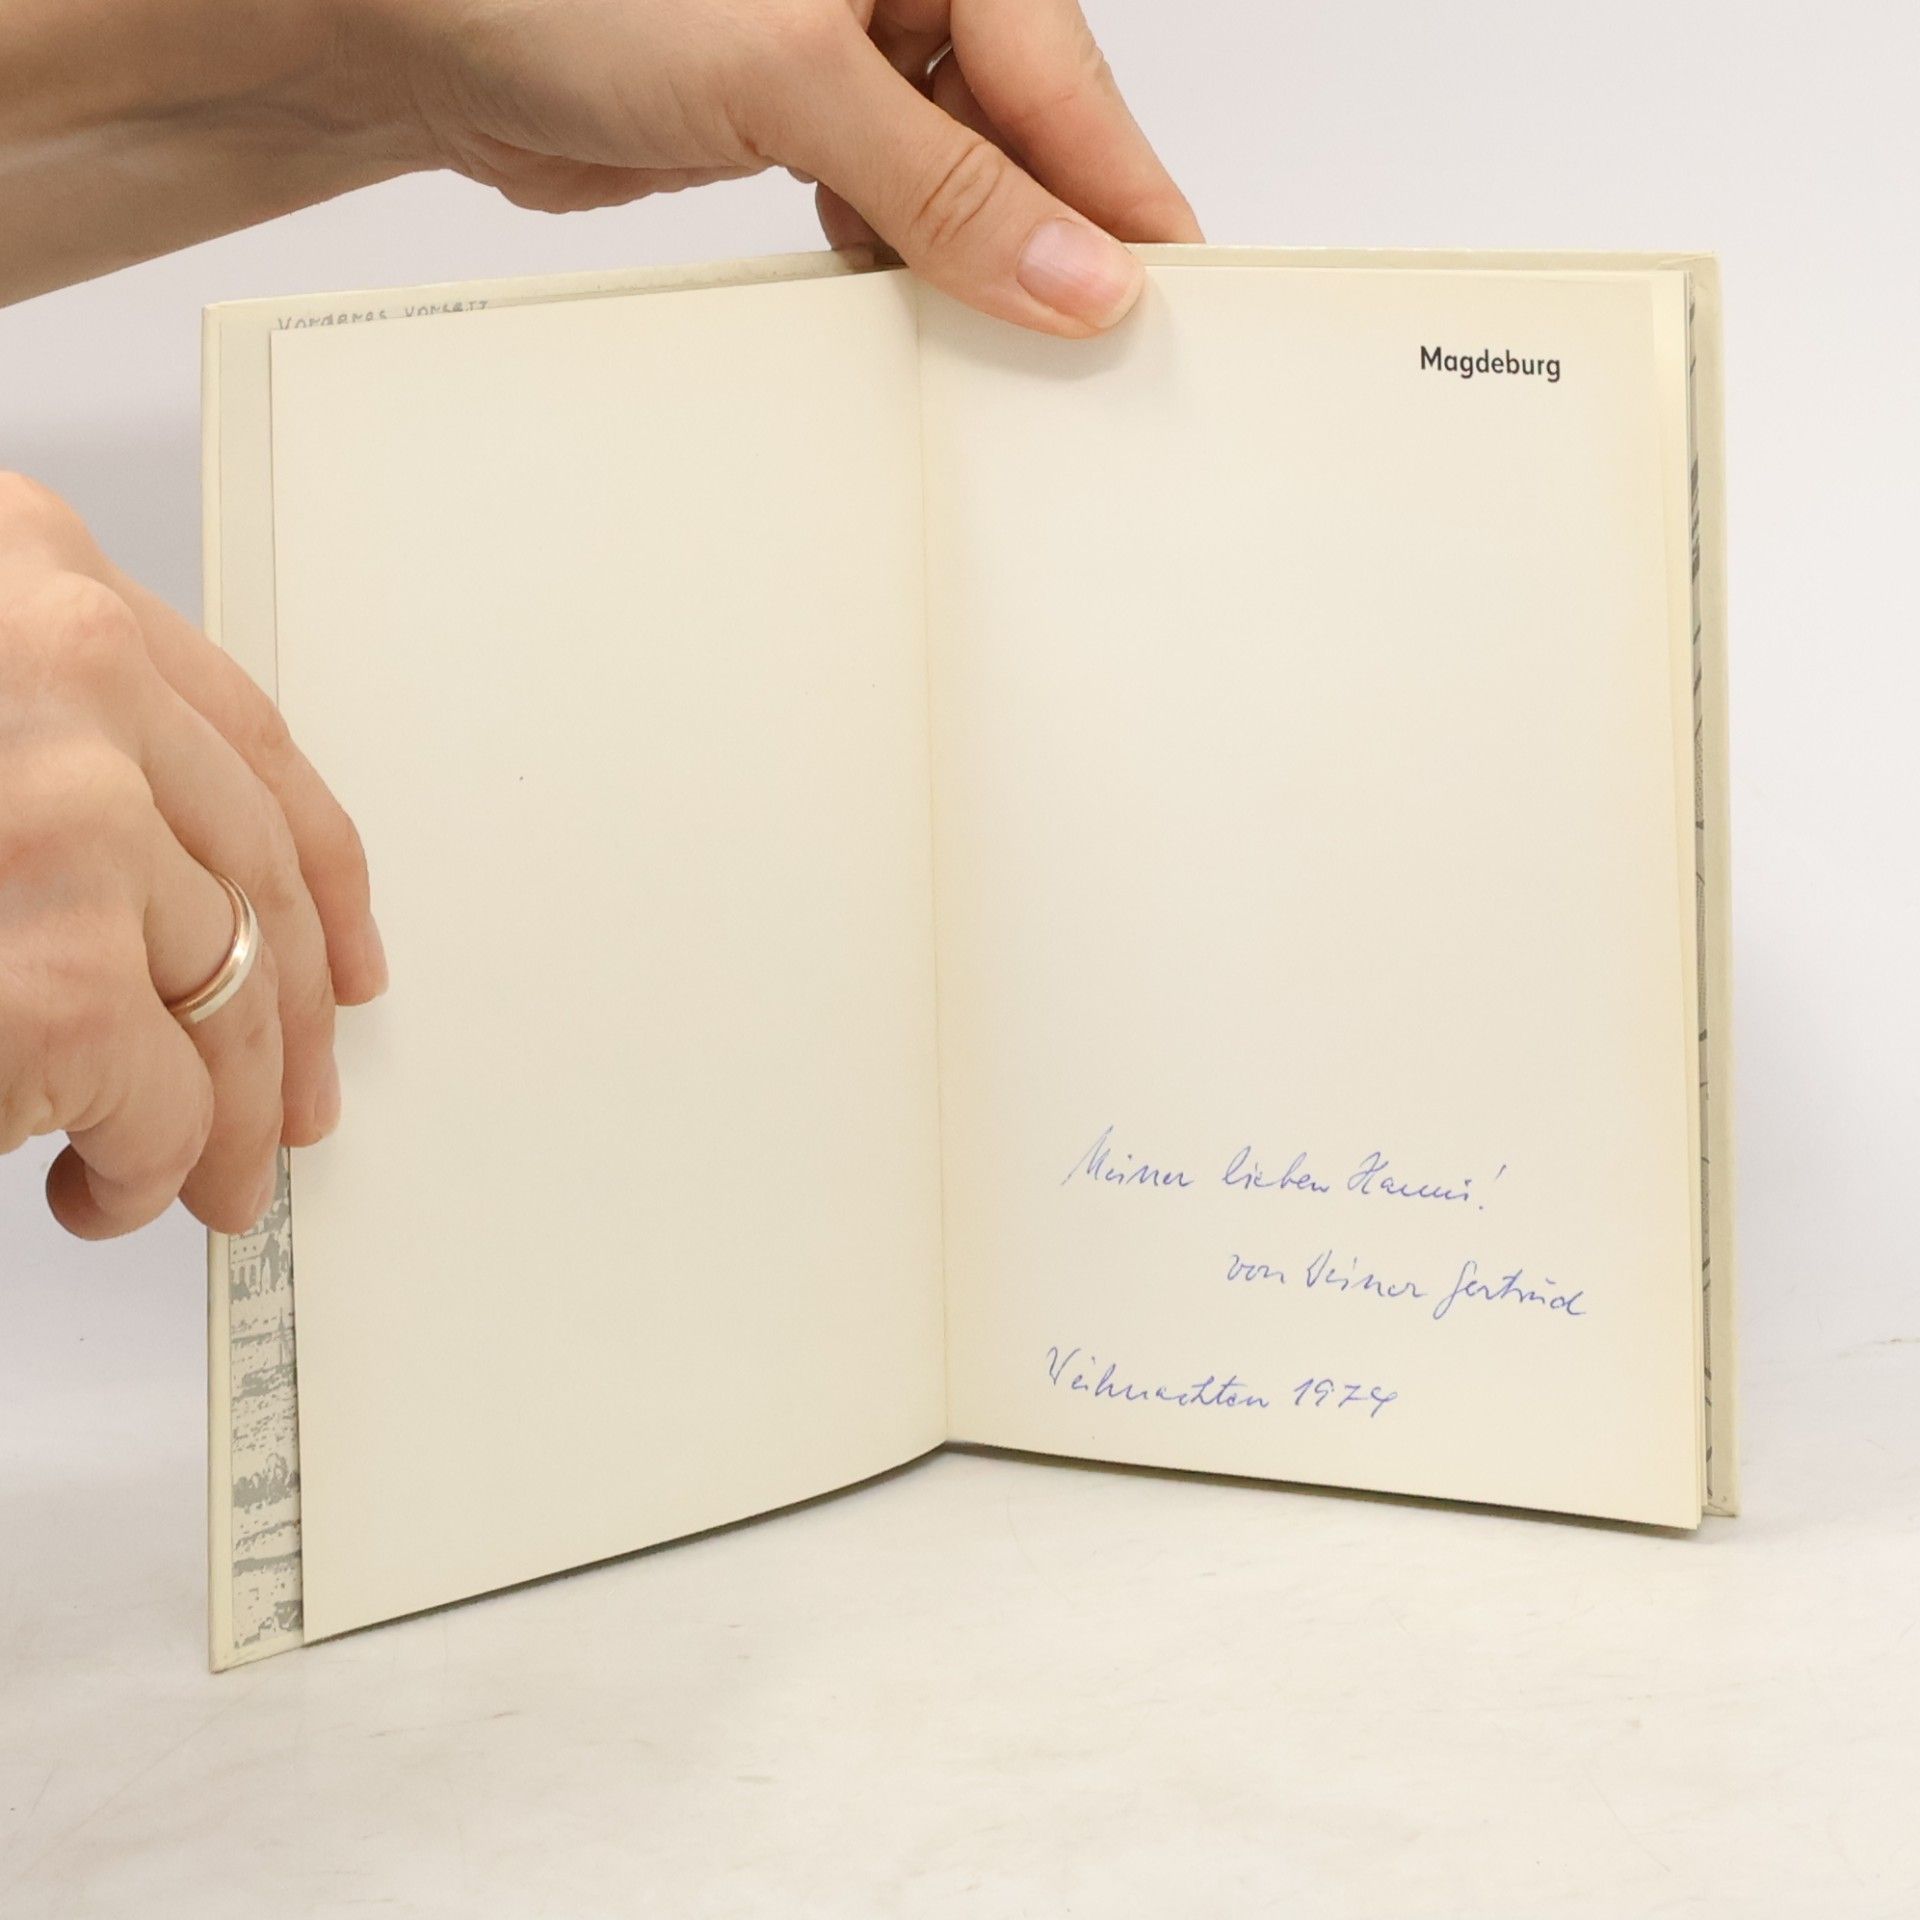 Vorderes Vorsatz
Magdeburg
Meiner lieben Hanni!
von Deiner Gertrud
Weihnachten 1974